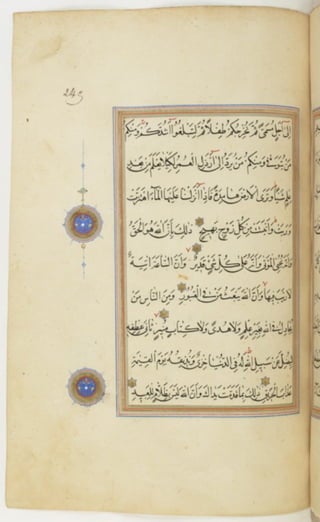 إِلَى أَجَلٍ مُسَمًّى ثُمَّ نُخْرِجُكُمْ طِفْلًا ثُمَّ لِتَبْلُغُوا أَشُدَّكُمْ وَمِنْكُمْ
مَنْ يُتَوَفَّى وَمِنْكُمْ مَنْ يُرَدُّ إِلَى أَرْذَلِ الْعُمُرِ لِكَيْلَا يَعْلَمَ مِنْ بَعْدِ
عِلْمٍ شَيْئًا وَتَرَى الْأَرْضَ هَامِدَةً فَإِذَا أَنْزَلْنَا عَلَيْهَا الْمَاءَ اهْتَزَّتْ
وَرَبَتْ وَأَنْبَتَتْ مِنْ كُلِّ زَوْجٍ بَهِيجٍ ذَلِكَ بِأَنَّ اللَّهَ هُوَ الْحَقُّ
وَأَنَّهُ يُحْيِي الْمَوْتَى وَأَنَّهُ عَلَى كُلِّ شَيْءٍ قَدِيرٌ وَأَنَّ السَّاعَةَ آتِيَةٌ
لَا رَيْبَ فِيهَا وَأَنَّ اللَّهَ يَبْعَثُ مَنْ فِي الْقُبُورِ وَمِنَ النَّاسِ مَنْ
يُجَادِلُ فِي اللَّهِ بِغَيْرِ عِلْمٍ وَلَا هُدًى وَلَا كِتَابٍ مُنِيرٍ ثَانِيَ عِطْفِهِ
لِيُضِلَّ عَنْ سَبِيلِ اللَّهِ لَهُ فِي الدُّنْيَا خِزْيٌ وَنُذِيقُهُ يَوْمَ الْقِيَامَةِ
عَذَابَ الْحَرِيقِ ذَلِكَ بِمَا قَدَّمَتْ يَدَاكَ وَأَنَّ اللَّهَ لَيْسَ بِظَلَّامٍ لِلْعَبِيدِ